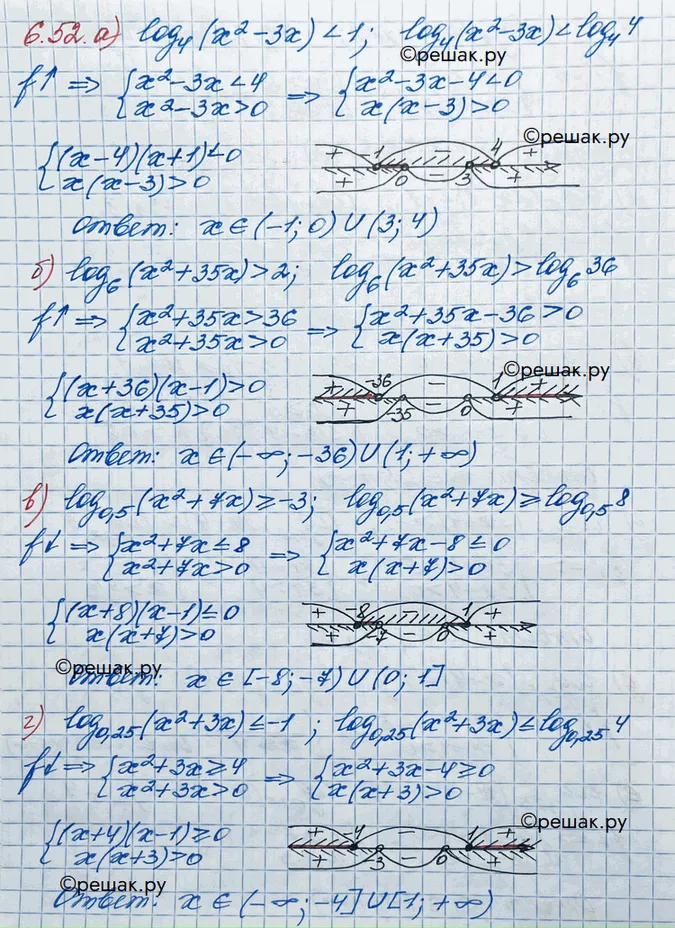 6.52. а) log₄(x²-3x)<1; log₄(x²-3x)<log₄4
©решак.ру
f↑ ⇒ {x²-3x<4 ⇒ {x²-3x-4<0
x²-3x>0 x(x-3)>0
©решак.ру
{(x-4)(x+1)<0 + -1 - 4 +
x(x-3)>0 + 0 - 3 +
Ответ: x∈(-1; 0)∪(3; 4)
б) log₆(x²+35x)>2; log₆(x²+35x)>log₆36
f↑ ⇒ {x²+35x>36 ⇒ {x²+35x-36>0
x²+35x>0 x(x+35)>0
©решак.ру
{(x+36)(x-1)>0 + -36 - 1 +
x(x+35)>0 + -35 - 0 +
Ответ: x∈(-∞; -36)∪(1; +∞)
в) log₀,₅(x²+7x)≥-3; log₀,₅(x²+7x)≥log₀,₅8
f↓ ⇒ {x²+7x≤8 ⇒ {x²+7x-8≤0
x²+7x>0 x(x+7)>0
{(x+8)(x-1)≤0 + -8 - 1 +
x(x+7)>0 + -7 - 0 +
©решак.ру
Ответ: x∈[-8; -7)∪(0; 1]
г) log₀,₂₅(x²+3x)≤-1; log₀,₂₅(x²+3x)≤log₀,₂₅4
f↓ ⇒ {x²+3x≥4 ⇒ {x²+3x-4≥0
x²+3x>0 x(x+3)>0
©решак.ру
{(x+4)(x-1)≥0 + -4 - 1 +
x(x+3)>0 + -3 - 0 +
©решак.ру
Ответ: x∈(-∞; -4]∪[1; +∞)